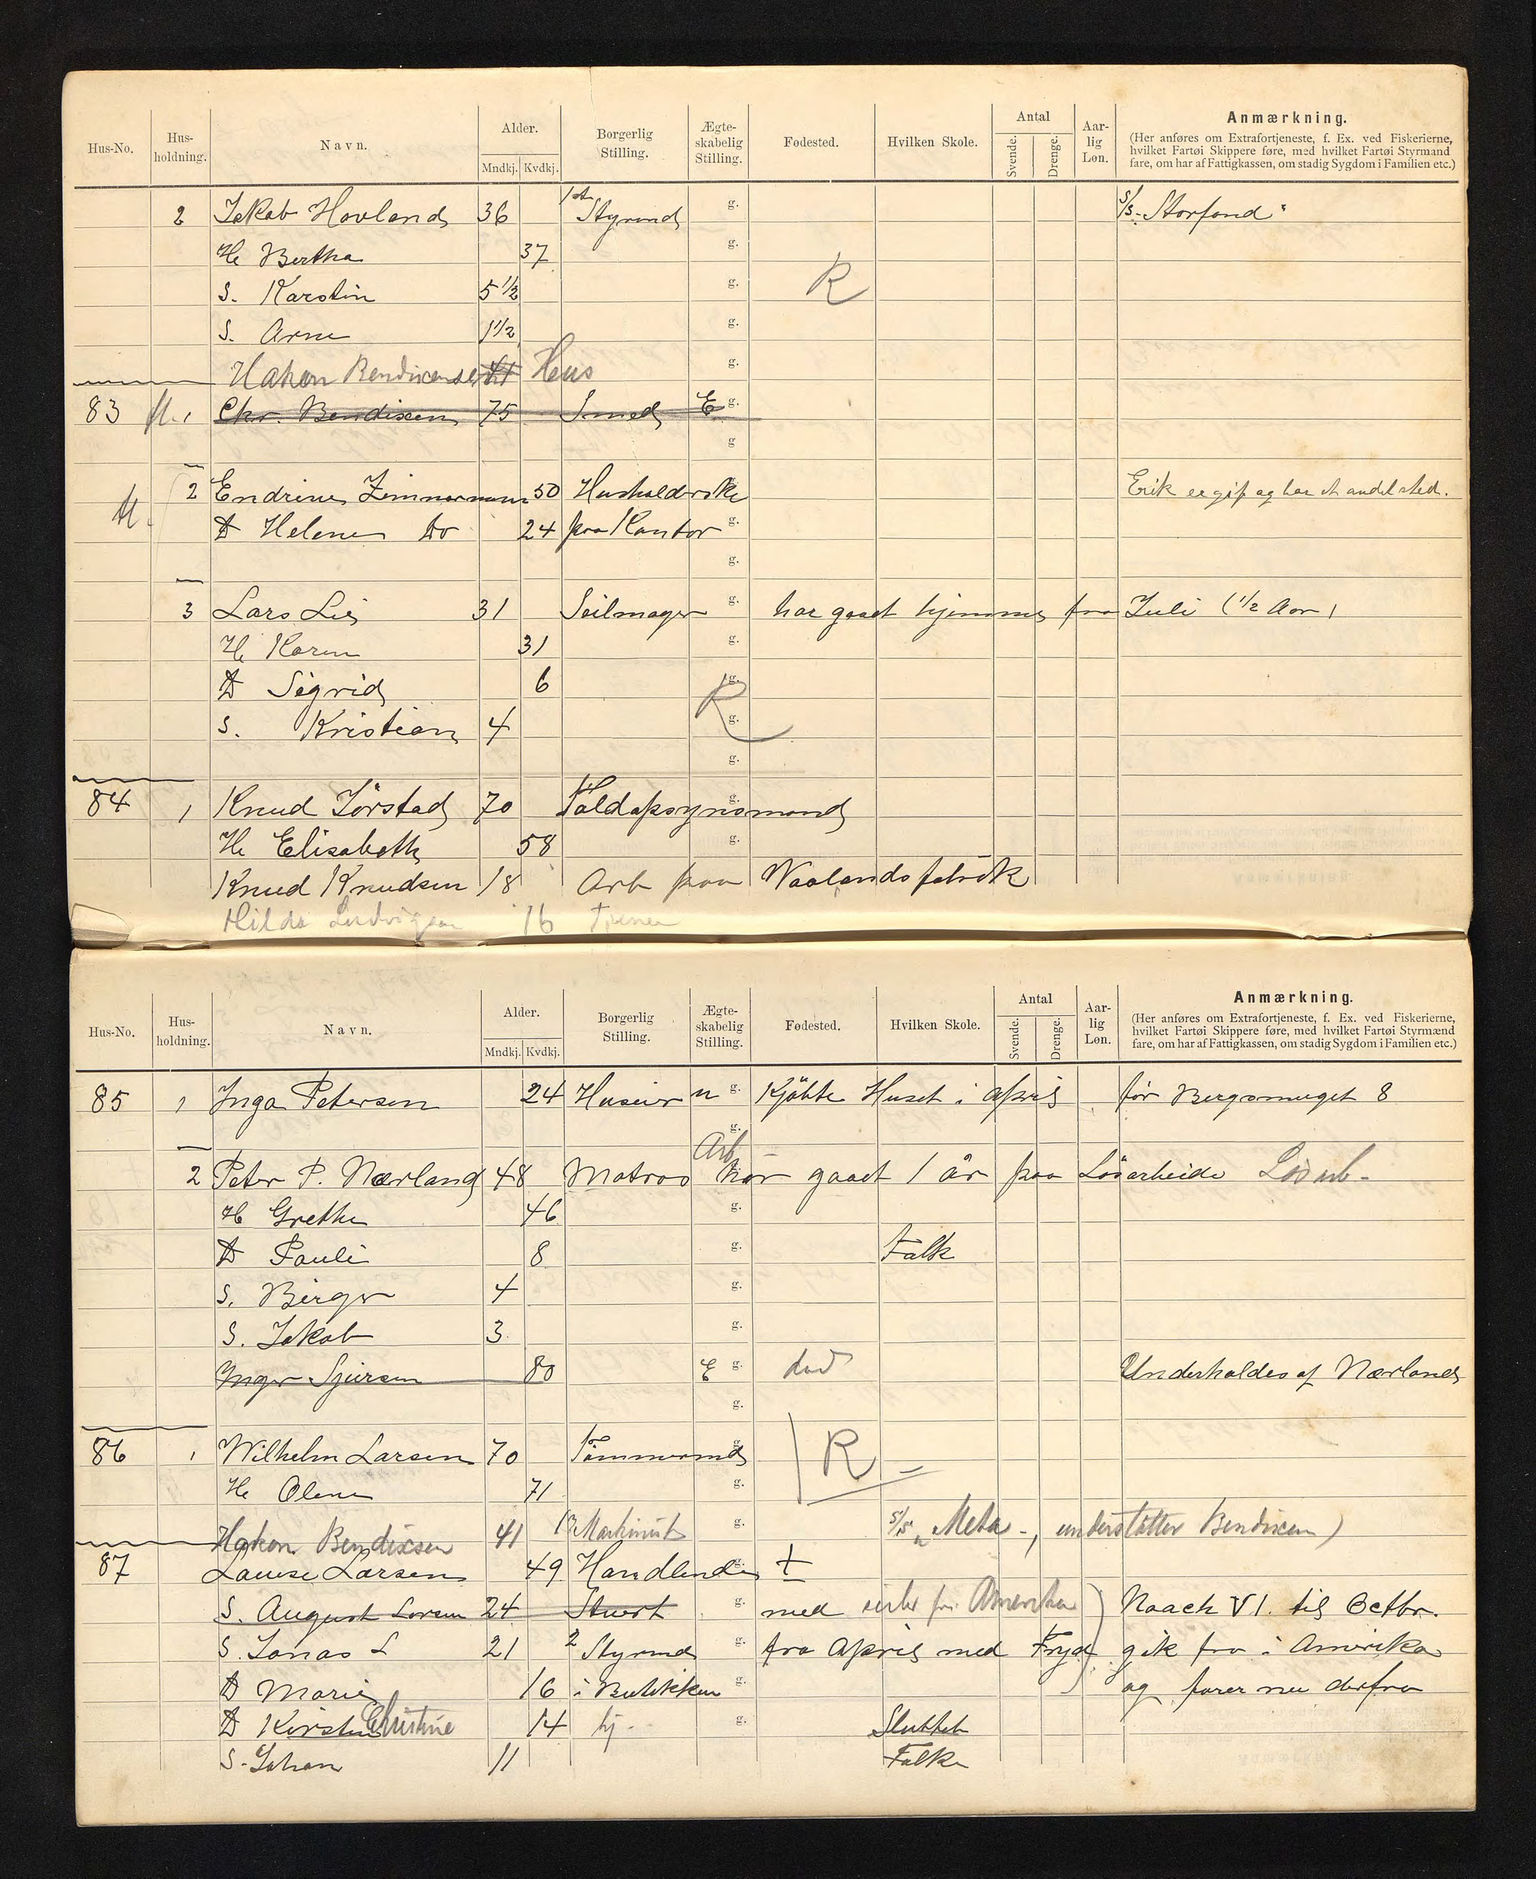 Hus-No. Hus-holdning. Navn. Alder. Mndkj. Kvdkj. Borgerlig Stilling. Ægte-skabelig Stilling. Fødested. Hvilken Skole. Antal Svende. Drenge. Aar-lig Løn. Anmærkning.
(Her anføres om Extrafortjeneste, f. Ex. ved Fiskerierne, hvilket Fartøi Skippere føre, med hvilket Fartøi Styrmand fare, om har af Fattigkassen, om stadig Sygdom i Familien etc.)
2 Jakob Hovland 36 1ste Styrmd g. S/S "Storfond"
H. Bertha 37 g.
S. Karstin 5 1/2 g. R
S. Arne 1 1/2 g.
Hakon Bendixsen 41 Hus g.
83 1 Chr. Bendixen 75 Smed E g.
g
2 Endrine Zimmermann 50 Husholderske Erik er gift og har et andet sted.
D Helene Do 24 paa Kontor g.
g.
3 Lars Lie 31 Seilmager g. har gaaet hjemme fra Juli (1/2 Aar)
H. Karen 31 g.
D Sigrid 6 g. R
S. Kristian 4 g.
g.
84 1 Knud Jörstad 70 Toldopsynsmand g.
H. Elisabeth 58 g.
Knud Knudsen 18 Arb paa Vaalands fabrik
Hilda Ludvigsen 16 Tjener
Hus-No. Hus-holdning. Navn. Alder. Mndkj. Kvdkj. Borgerlig Stilling. Ægte-skabelig Stilling. Fødested. Hvilken Skole. Antal Svende. Drenge. Aar-lig Løn. Anmærkning.
(Her anføres om Extrafortjeneste, f. Ex. ved Fiskerierne, hvilket Fartøi Skippere føre, med hvilket Fartøi Styrmænd fare, om har af Fattigkassen, om stadig Sygdom i Familien etc.)
85 1 Inga Petersen 24 Huseier u g. Kjöbte Huset i April för Bergsmuget 8
g.
Arb
2 Peter P. Nærland 48 Matros har gaaet 1 år paa Lösarbeide Lös arb-
H Grethe 46 g.
D Pauli 8 g. Falk
S. Birger 4 g.
S. Jakob 3 g.
Inger Sjursen 80 E g. död Underholdes af Nærland
g.
86 1 Wilhelm Larsen 70 Tömmermd g. R
H. Olene 71 g.
Hakon Bendixsen 41 Maskinist g. S/S "Meta", understötter Bendixen)
87 Louise Larsen 49 Handlende g. +
S. August Larsen 24 Stuert g. med Amerika Noack VI. til Octbr.
S. Jonas L 21 2 Styrmd g. fra April med Fryd gik fra i Amerika
D Marie 16 i Butikken g. og farer nu derfra
D Kirstine Christine 14 tj- g. Sluttet
S. Johan 11 Falke